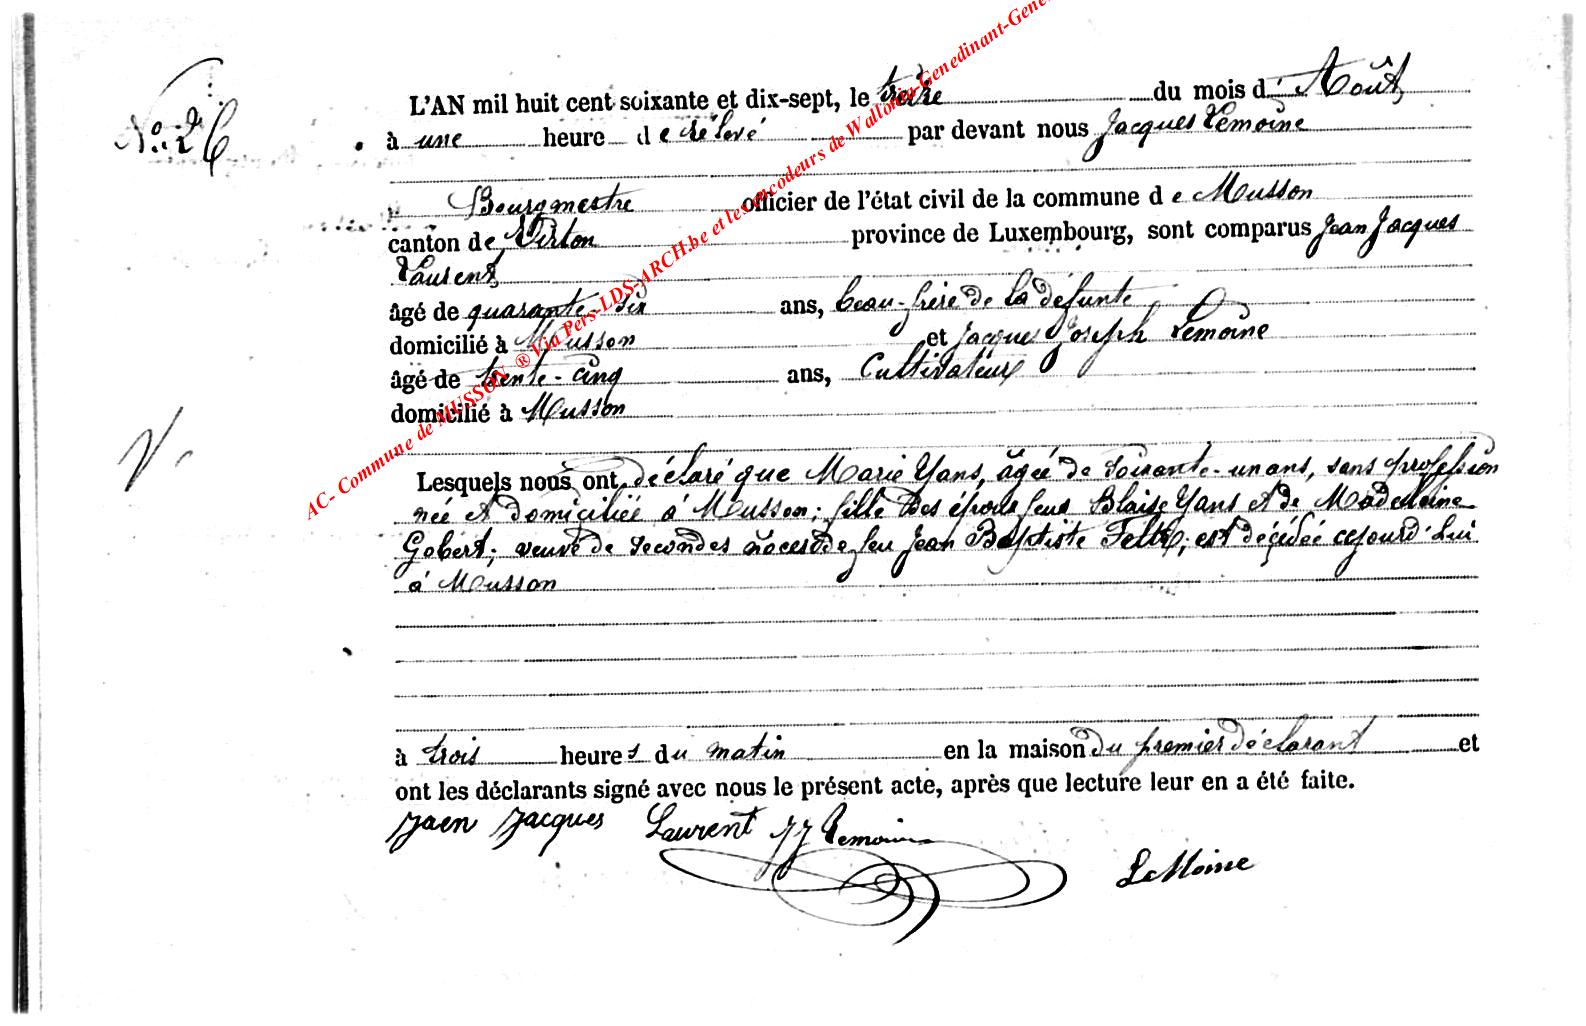 N° 26
L'AN mil huit cent soixante et dix-sept, le treize du mois d' Août,
à une heure de rélevé par devant nous Jacques Lemoine
Bourgmestre officier de l'état civil de la commune de Musson
canton de Virton province de Luxembourg, sont comparus Jean Jacques
Laurent,
âgé de quarante-six ans, beau-frère de la défunte
domicilié à Musson et Jacques Joseph Lemoine
âgé de trente-cinq ans, Cultivateur
domicilié à Musson
Lesquels nous ont déclaré que Marie Yans, âgée de soixante-un ans, sans profession
née et domiciliée à Musson; fille des époux feus Blaise Yans et de Madeleine
Gobert; veuve de secondes nôces de feu Jean Baptiste; est décédée cejourd'hui
à Musson
à trois heures du matin en la maison du premier déclarant et
ont les déclarants signé avec nous le présent acte, après que lecture leur en a été faite.
Jaen Jacques Laurent JJ Lemoine
LeMoine
AC- Commune de MUSSON ® Via Pers-LDS-ARCH.be et les encodeurs de Wallonia-Genedinant-Gene